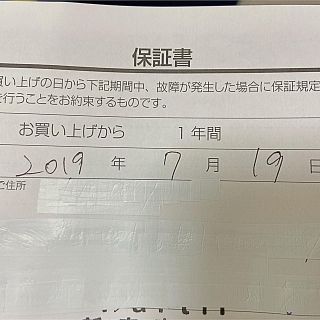 保証書
買い上げの日から下記期間中、故障が発生した場合に保証規定
を行うことをお約束するものです。
お買い上げから 1年間
2019 年 7 月 19 日
ご住所